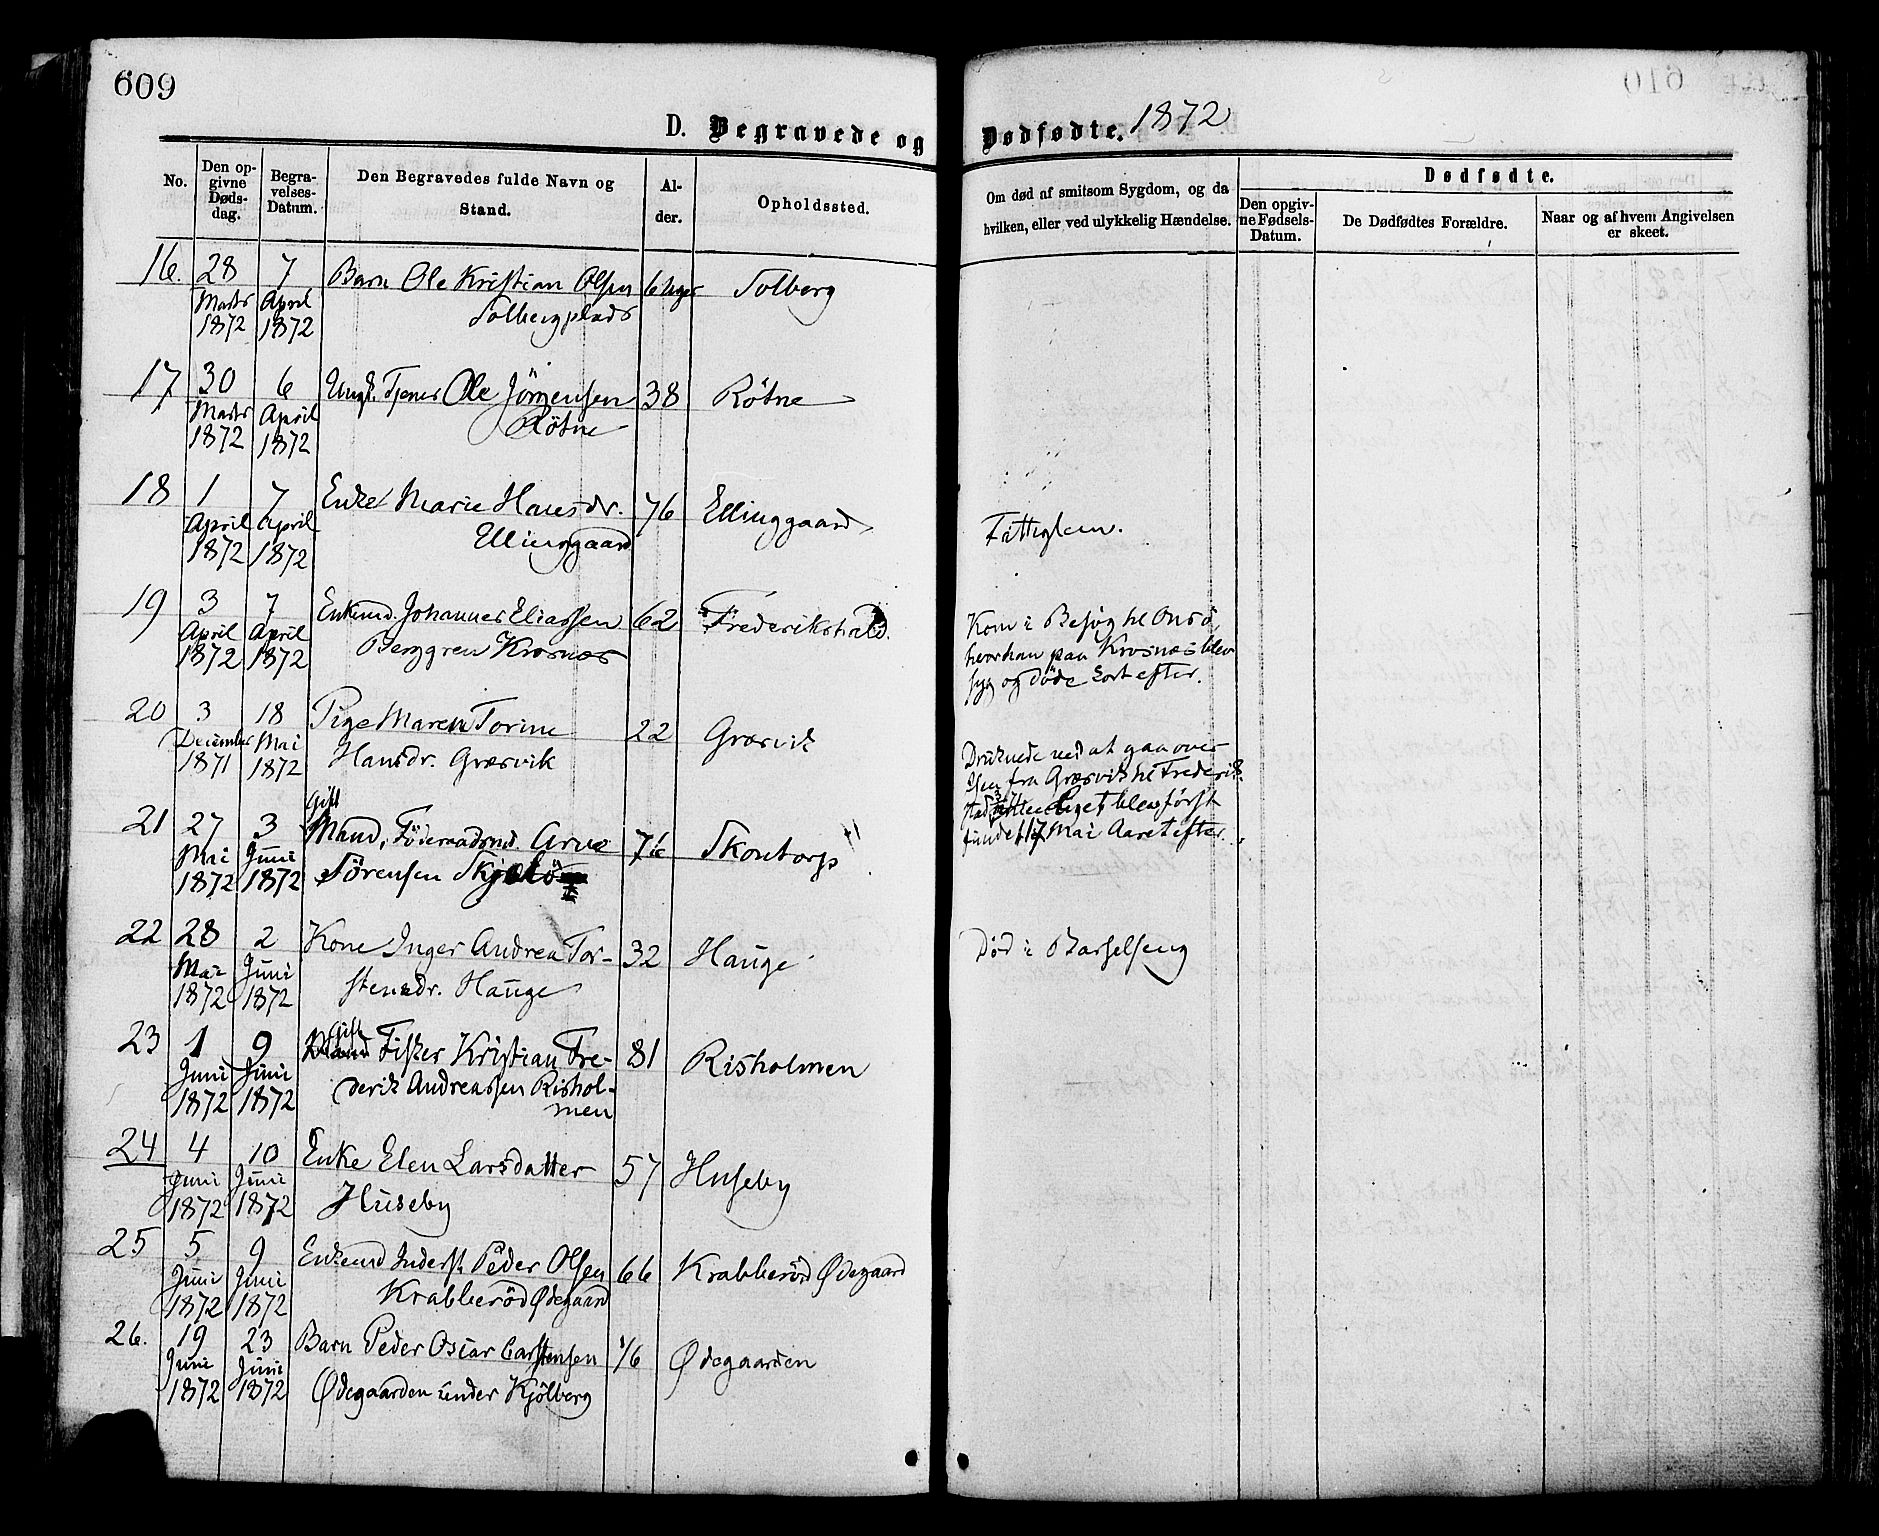 609
D. Begravede og Dødfødte. 1872
No.
Den op-
givne
Døds-
dag.
Begra-
velses-
Datum.
Den Begravedes fulde Navn og
Stand.
Al-
der.
Opholdssted.
Om død af smitsom Sygdom, og da
hvilken, eller ved ulykkelig Hændelse.
Dødfødte.
Den opgiv-
ne Fødsels-
Datum.
De Dødfødtes Forældre.
Naar og af hvem Angivelsen
er skeet.
16. 28 7 Barn Ole Kristian Olsen 6 Solberg
Marts April Solbergplads
1872 1872
17 30 6 Ungk. Tjener Ole Jörgensen 38 Rötne
Marts April Rötne
1872 1872
18 1 7 Enke Marie Hansdr. 76 Ellinggaard
April April Ellinggaard Fattiglem.
1872 1872
19 3 7 Enkemd. Johannes Eliassen 62 Frederikshald.
April April Berggren Krosnæs
1872 1872
Kom i Besøg til Onsö,
hvor han paa Krosnæs blev
syg og döde kort efter.
20 3 18 Pige Maren Torine 22 Græsvik
December Mai Hansdr. Græsvik
1871 1872
Druknede ved at gaa over
Isen fra Græsvik til Frederik-
stad Liget blev först
fundet 17 Mai Aaret efter.
Gift
21 27 3 Mand, Föderaadsmd. Arne 76 Skoutorp
Mai Juni Sörensen
1872 1872
22 28 2 Kone Inger Andrea Tor- 32 Hauge Död i Barselseng
Mai Juni stensdr. Hauge
1872 1872
Gift
23 1 9 Mand Fisker Kristian Fre- 81 Risholmen
Juni Juni derik Andreassen Rishol-
1872 1872 men
24 4 10 Enke Elen Larsdatter 57 Huseby
Juni Juni Huseby
1872 1872
25 5 9 Enkemd Inderst. Peder Olsen 66 Krabberöd Ødegaard
Juni Juni Krabberöd Ødegaard
1872 1872
26. 19 23 Barn Peder Oscar Carstensen 1/6 Ødegaarden
Juni Juni Ødegaarden under Kjölberg
1872 1872